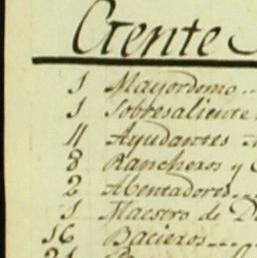 Gente
1 Mayordomo...
1 Sobresaliente
4 Ayudantes
8 Rancheros y
2 Abentadores...
1 Maestro de
16 Bacieros....